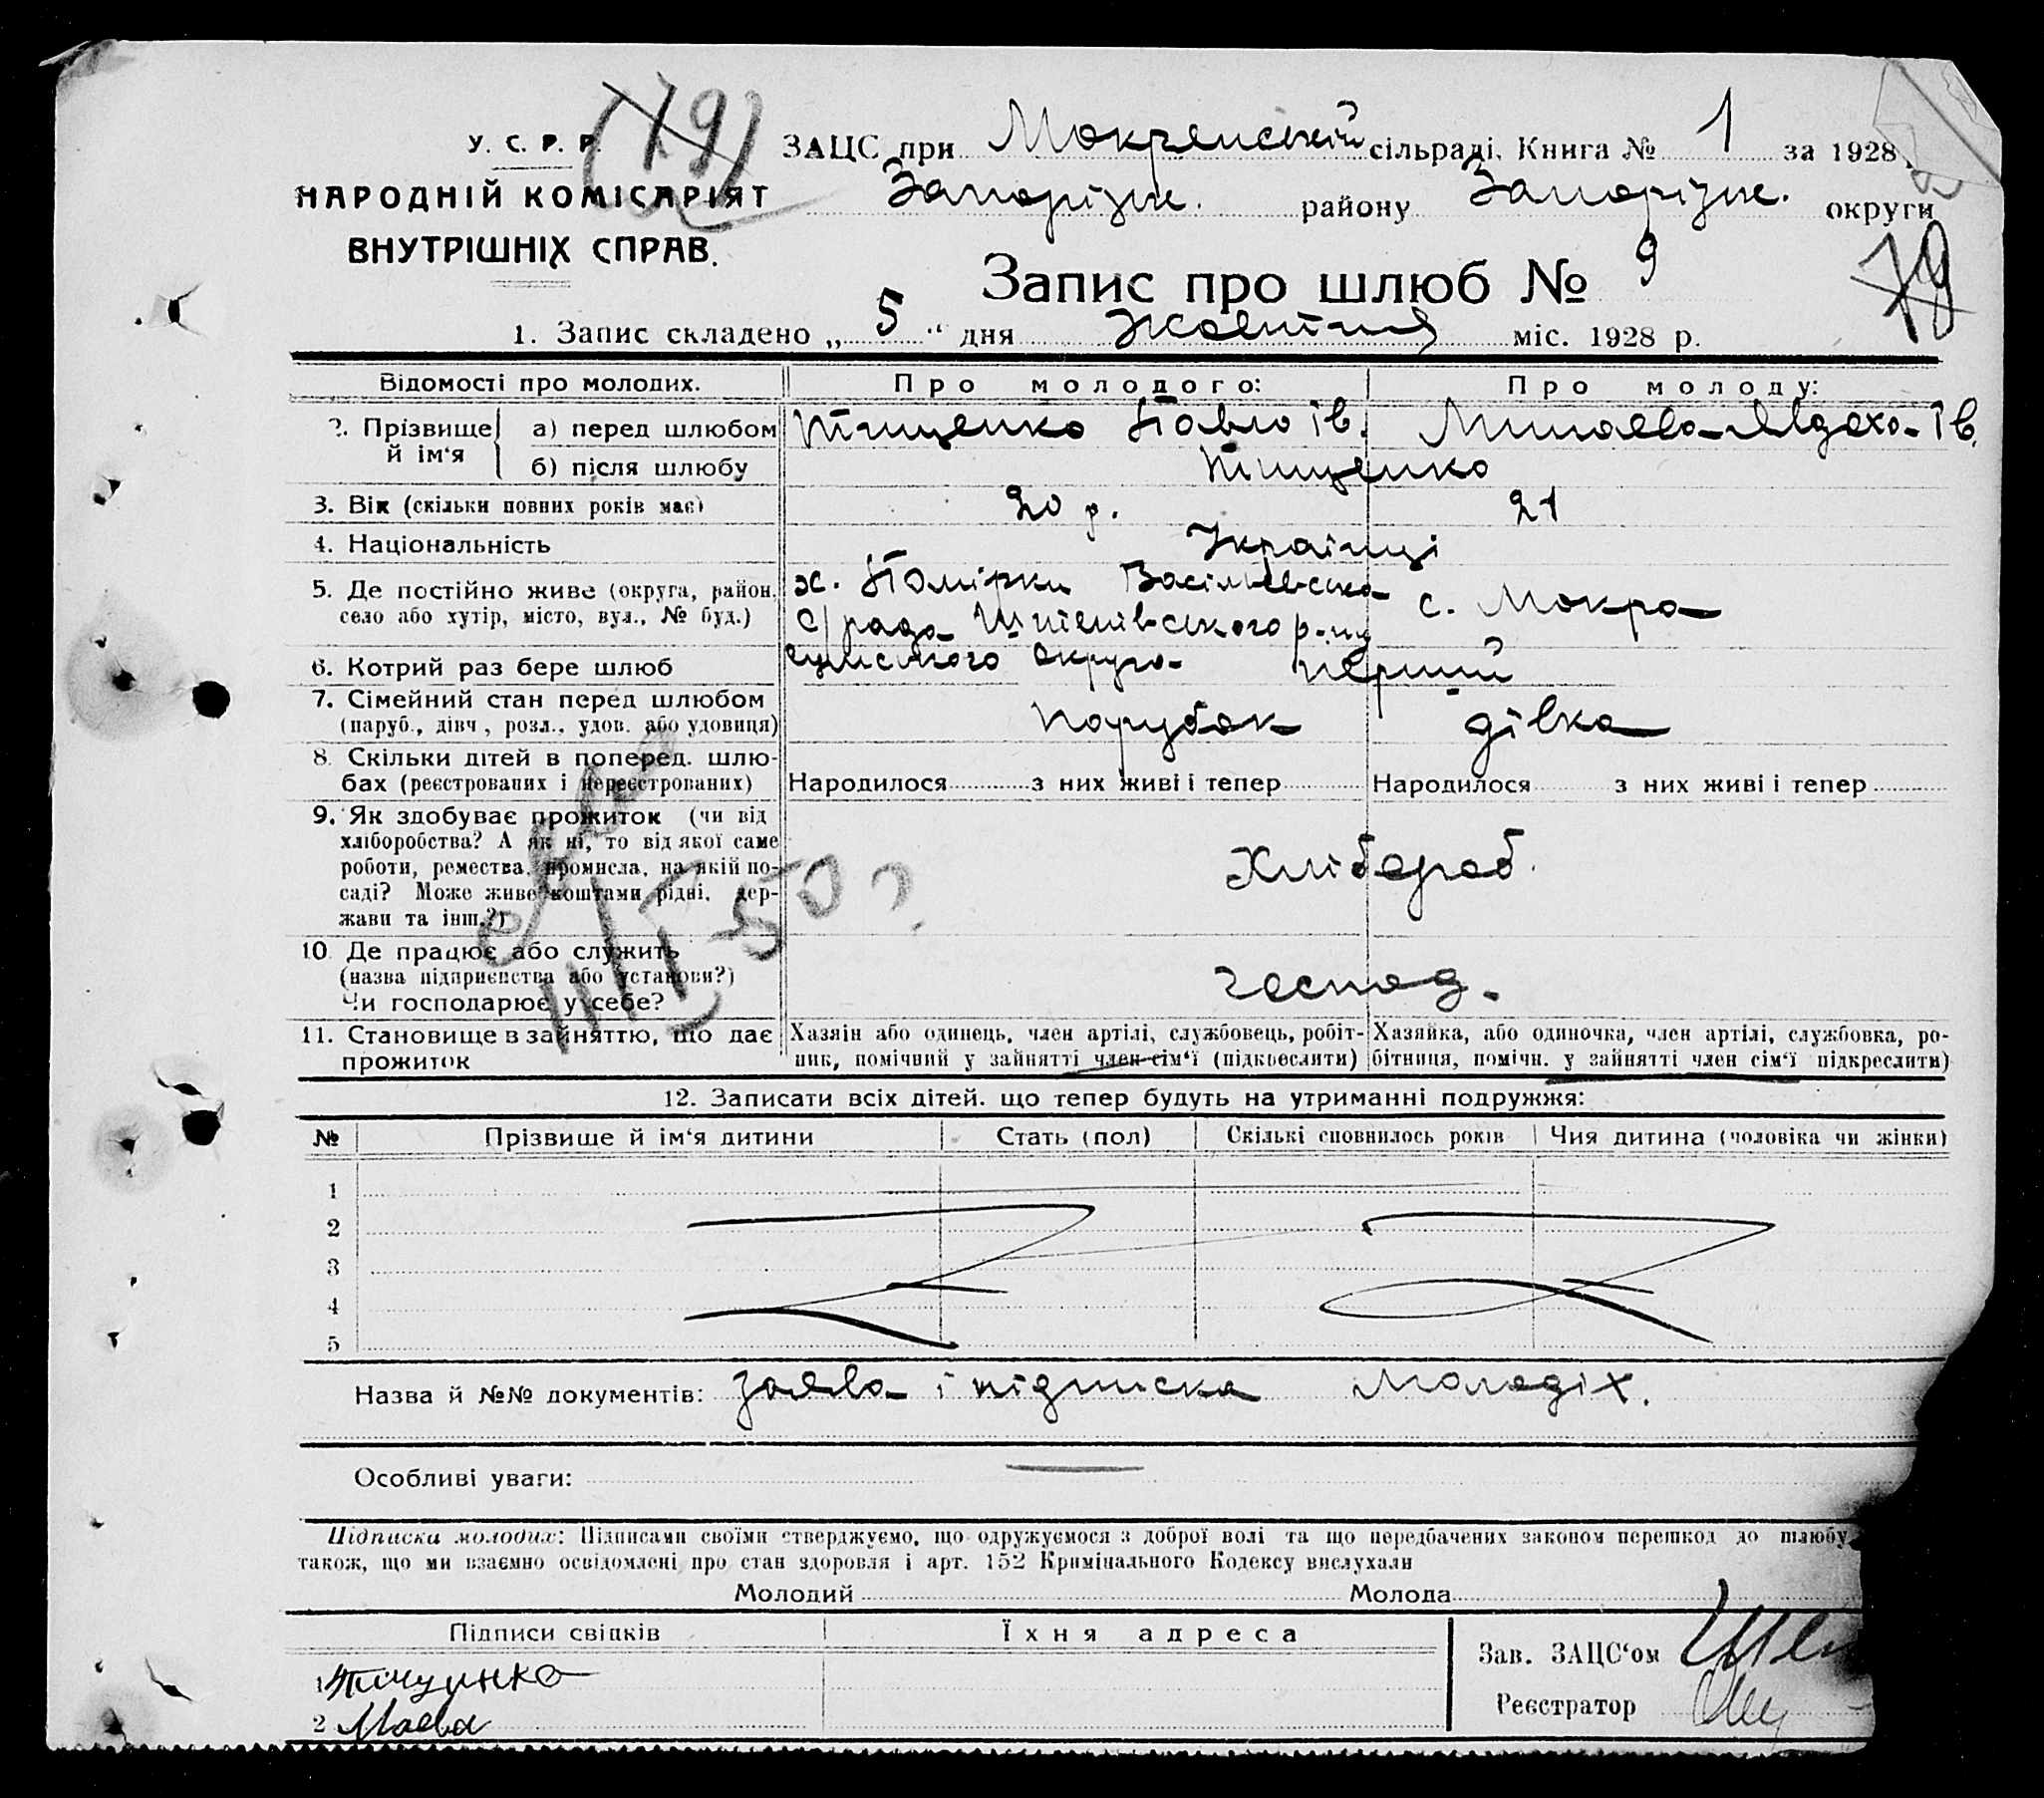 (79)
У. С. Р. Р.
НАРОДНІЙ КОМІСАРІЯТ
ВНУТРІШНІХ СПРАВ.
ЗАЦС при Мокрянській сільраді. Книга № 1 за 1928
Запорізьк. району Запорізьк. округи
79
Запис про шлюб № 9
1. Запис складено „ 5 “ дня Жовтня міс. 1928 р.
Відомості про молодих. Про молодого: Про молоду:
2. Прізвище й ім‘я а) перед шлюбом Тищенко Павло Ів. Минаева Явдоха Ів.
б) після шлюбу Тищенко
3. Вік (скільки повних років має) 20 р. 21
4. Національність Українці
5. Де постійно живе (округа, район, х. Помірки Васільевська с. Мокра
село або хутір, місто, вул., № буд.) С/рада Штепівського р-ну
Сумського округа
6. Котрий раз бере шлюб перший
7. Сімейний стан перед шлюбом парубок дівка
(паруб., дівч., розл., удов. або удовиця)
8. Скільки дітей в поперед. шлю-
бах (реєстрованих і нереєстрованих) Народилося з них живі і тепер Народилося з них живі і тепер
9. Як здобуває прожиток (чи від
хліборобства? А як ні, то від якої саме
роботи, ремества, промисла, на якій по-
саді? Може живе коштами рідні, дер-
жави та інш.?) Хлібороб.
10. Де працює або служить
(назва підприємства або установи?) господ.
Чи господарює у себе?
11. Становище в зайняттю, що дає Хазяїн або одинець, член артілі, службовець, робіт- Хазяйка, або одиночка, член артілі, службовка, ро-
прожиток ник, помічний у зайнятті член сім‘ї (підкреслити) бітниця, помічн. у зайнятті член сім‘ї підкреслити)
12. Записати всіх дітей, що тепер будуть на утриманні подружжя:
№ Прізвище й ім‘я дитини Стать (пол) Скількі сповнилось років Чия дитина (чоловіка чи жінки)
1
2
3
4
5
Назва й №№ документів: заява і підписка молодіх.
Особливі уваги:
Підписка молодих: Підписами своїми стверджуємо, що одружуємося з доброї волі та що передбачених законом перешкод до шлюбу
також, що ми взаємно освідомлені про стан здоровля і арт. 152 Кримінального Кодексу вислухали
Молодий Молода
Підписи свідків Їхня адреса
Зав. ЗАЦС‘ом
1
Реєстратор
2 Маева